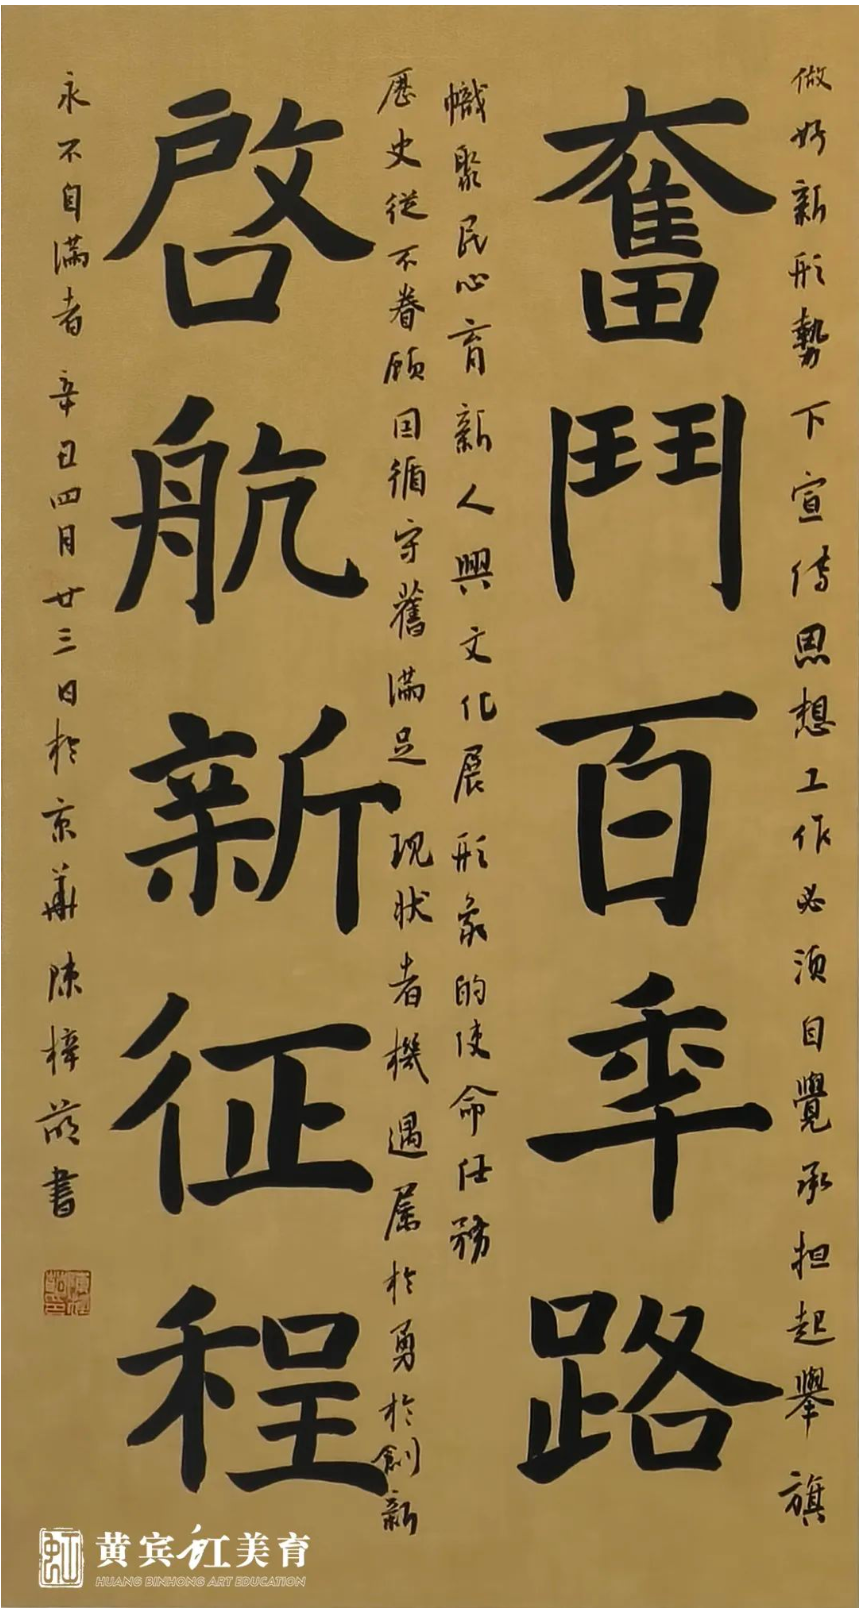 奮鬥百年路
啓航新征程
做好新形勢下宣傳思想工作必須自覺承担起舉旗
幟聚民心育新人興文化展形象的使命任務
歷史從不眷顧因循守舊滿足現狀者機遇屬於勇於創新
永不自滿者 辛丑四月廿三日於京華陳梓 書
黄宾虹美育
HUANG BINHONG ART EDUCATION